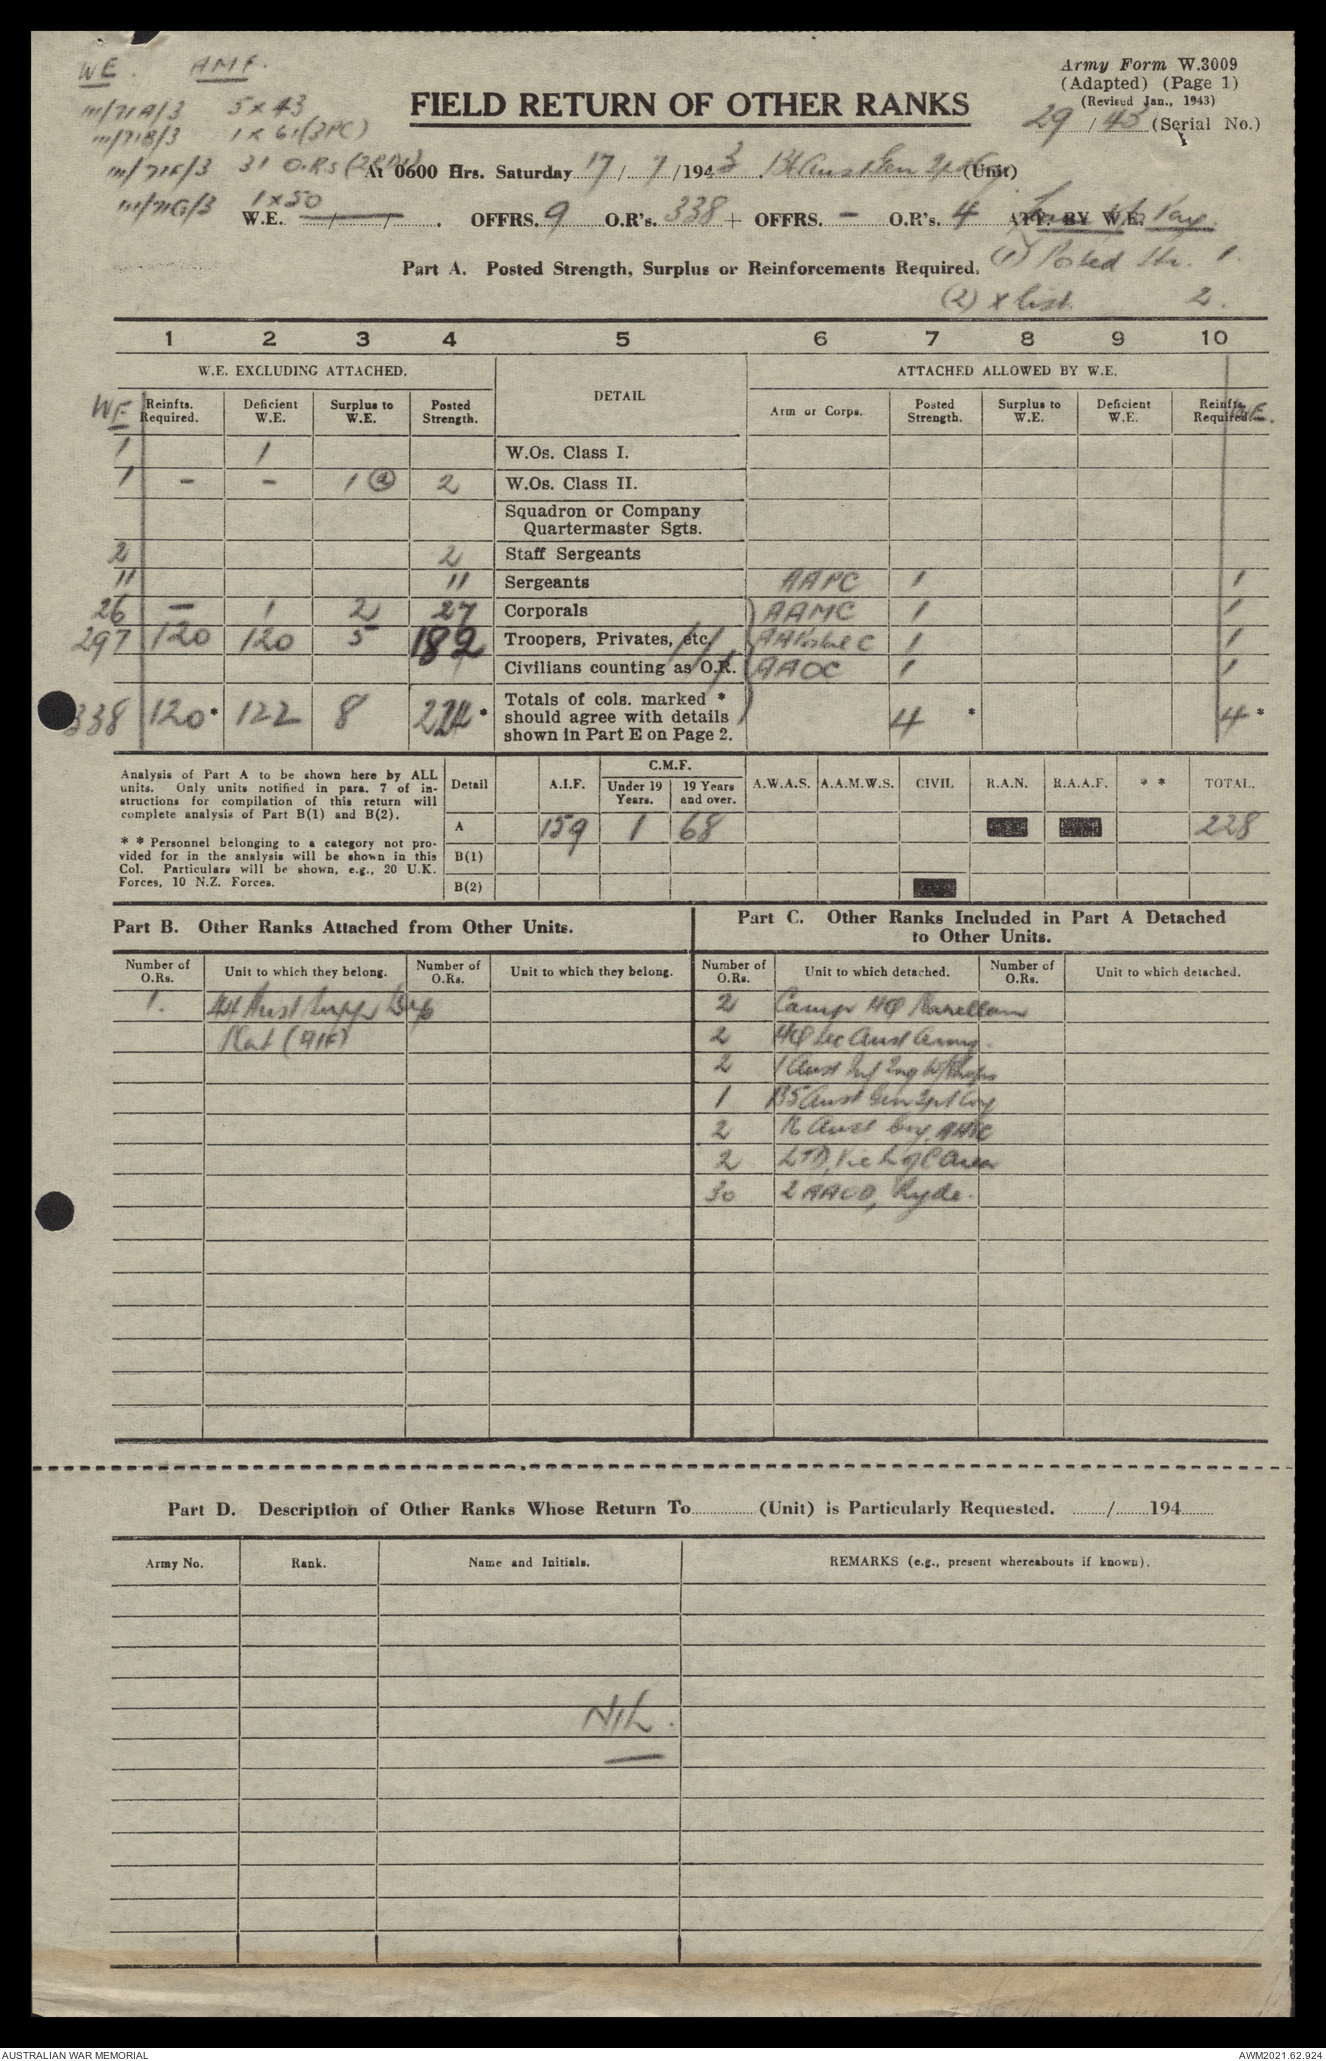 WE. AMF.
Army Form W.3009
(Adapted) (Page 1)
(Revised Jan., 1943)
29 / 43 (Serial No.)
III/71A/3 5 x 43
III/71B/3 1 x 61 (3PC)
III/71F/3 31 O.Rs
III/71G/3 1 x 50
FIELD RETURN OF OTHER RANKS
At 0600 Hrs. Saturday 17 / 7 /1943. Aust Gen (Unit)
W.E. OFFRS. 9 O.R's. 338 + OFFRS. – O.R's. 4 ATT. BY W.E.
(1) Posted Str. 1.
(2) X List. 2.
Part A. Posted Strength, Surplus or Reinforcements Required.
1 2 3 4 5 6 7 8 9 10
W.E. EXCLUDING ATTACHED. DETAIL ATTACHED ALLOWED BY W.E.
WE Reinfts. Required. Deficient W.E. Surplus to W.E. Posted Strength. Arm or Corps. Posted Strength. Surplus to W.E. Deficient W.E. Reinfts. Required. W.E.
1 1 W.Os. Class I.
1 – – 1 (a) 2 W.Os. Class II.
Squadron or Company
Quartermaster Sgts.
2 2 Staff Sergeants
11 11 Sergeants AAPC 1 1
26 – 1 2 27 Corporals AAMC 1 1
297 120 120 5 182 Troopers, Privates, etc. AA Postal C 1 1
Civilians counting as O.R. AAOC 1 1
338 120* 122 8 224* Totals of cols. marked * 4 * 4 *
should agree with details
shown in Part E on Page 2.
Analysis of Part A to be shown here by ALL
units. Only units notified in para. 7 of in-
structions for compilation of this return will
complete analysis of Part B(1) and B(2).
* * Personnel belonging to a category not pro-
vided for in the analysis will be shown in this
Col. Particulars will be shown, e.g., 20 U.K.
Forces, 10 N.Z. Forces.
Detail A.I.F. C.M.F. Under 19 Years. 19 Years and over. A.W.A.S. A.A.M.W.S. CIVIL R.A.N. R.A.A.F. * * TOTAL.
A 159 1 68 228
B(1)
B(2)
Part B. Other Ranks Attached from Other Units.
Number of O.Rs. Unit to which they belong. Number of O.Rs. Unit to which they belong.
1. Aust Supp
(AIF)
Part C. Other Ranks Included in Part A Detached
to Other Units.
Number of O.Rs. Unit to which detached. Number of O.Rs. Unit to which detached.
2 Camp HQ Narellan
2 HQ Sec Aust Army.
2 1 Aust
1 Aust Gen Coy
2 Aust Coy,
2 LTD, Vic L of C Area
30 2 AAOD, Ryde.
Part D. Description of Other Ranks Whose Return To (Unit) is Particularly Requested. / 194
Army No. Rank. Name and Initials. REMARKS (e.g., present whereabouts if known).
NIL.
AUSTRALIAN WAR MEMORIAL AWM2021.62.924